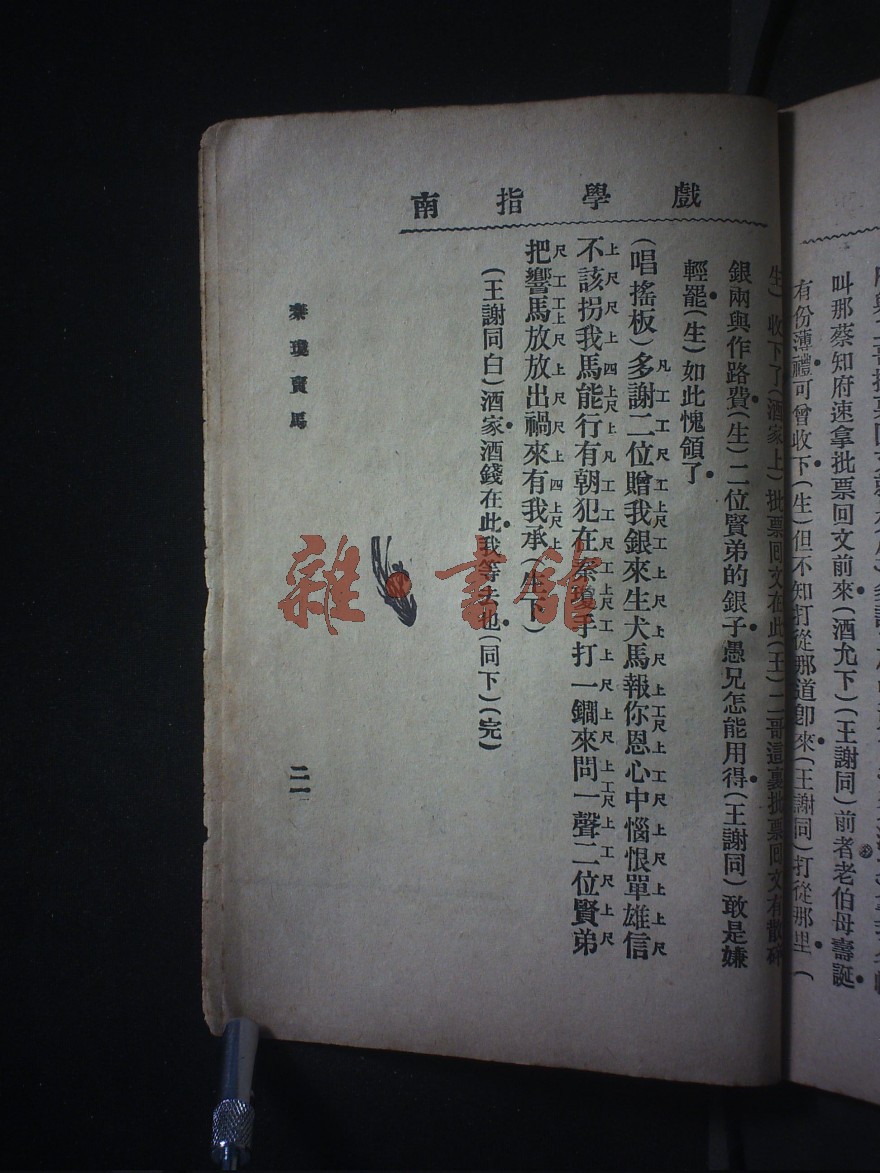 叫那蔡知府速拿批票回文前來(酒允下)(王謝同)前者老伯母壽誕
有份薄禮可曾收下(生)但不知打從那道卽來(王謝同)打從那里(
戲學指南
生)收下了(酒家上)批票回文在此(王)二哥這裏批票回文有散碎
銀兩與作路費(生)二位賢弟的銀子愚兄怎能用得(王謝同)敢是嫌
輕罷(生)如此愧領了
(唱搖板)多謝二位贈我銀來生犬馬報你恩心中惱恨單雄信
不該拐我馬能行有朝犯在秦瓊手打一鐧來問一聲二位賢弟
把響馬放放出禍來有我承(生下)
(王謝同白)酒家酒錢在此我等去也(同下)(完)
秦瓊賣馬
二一
雜·書館